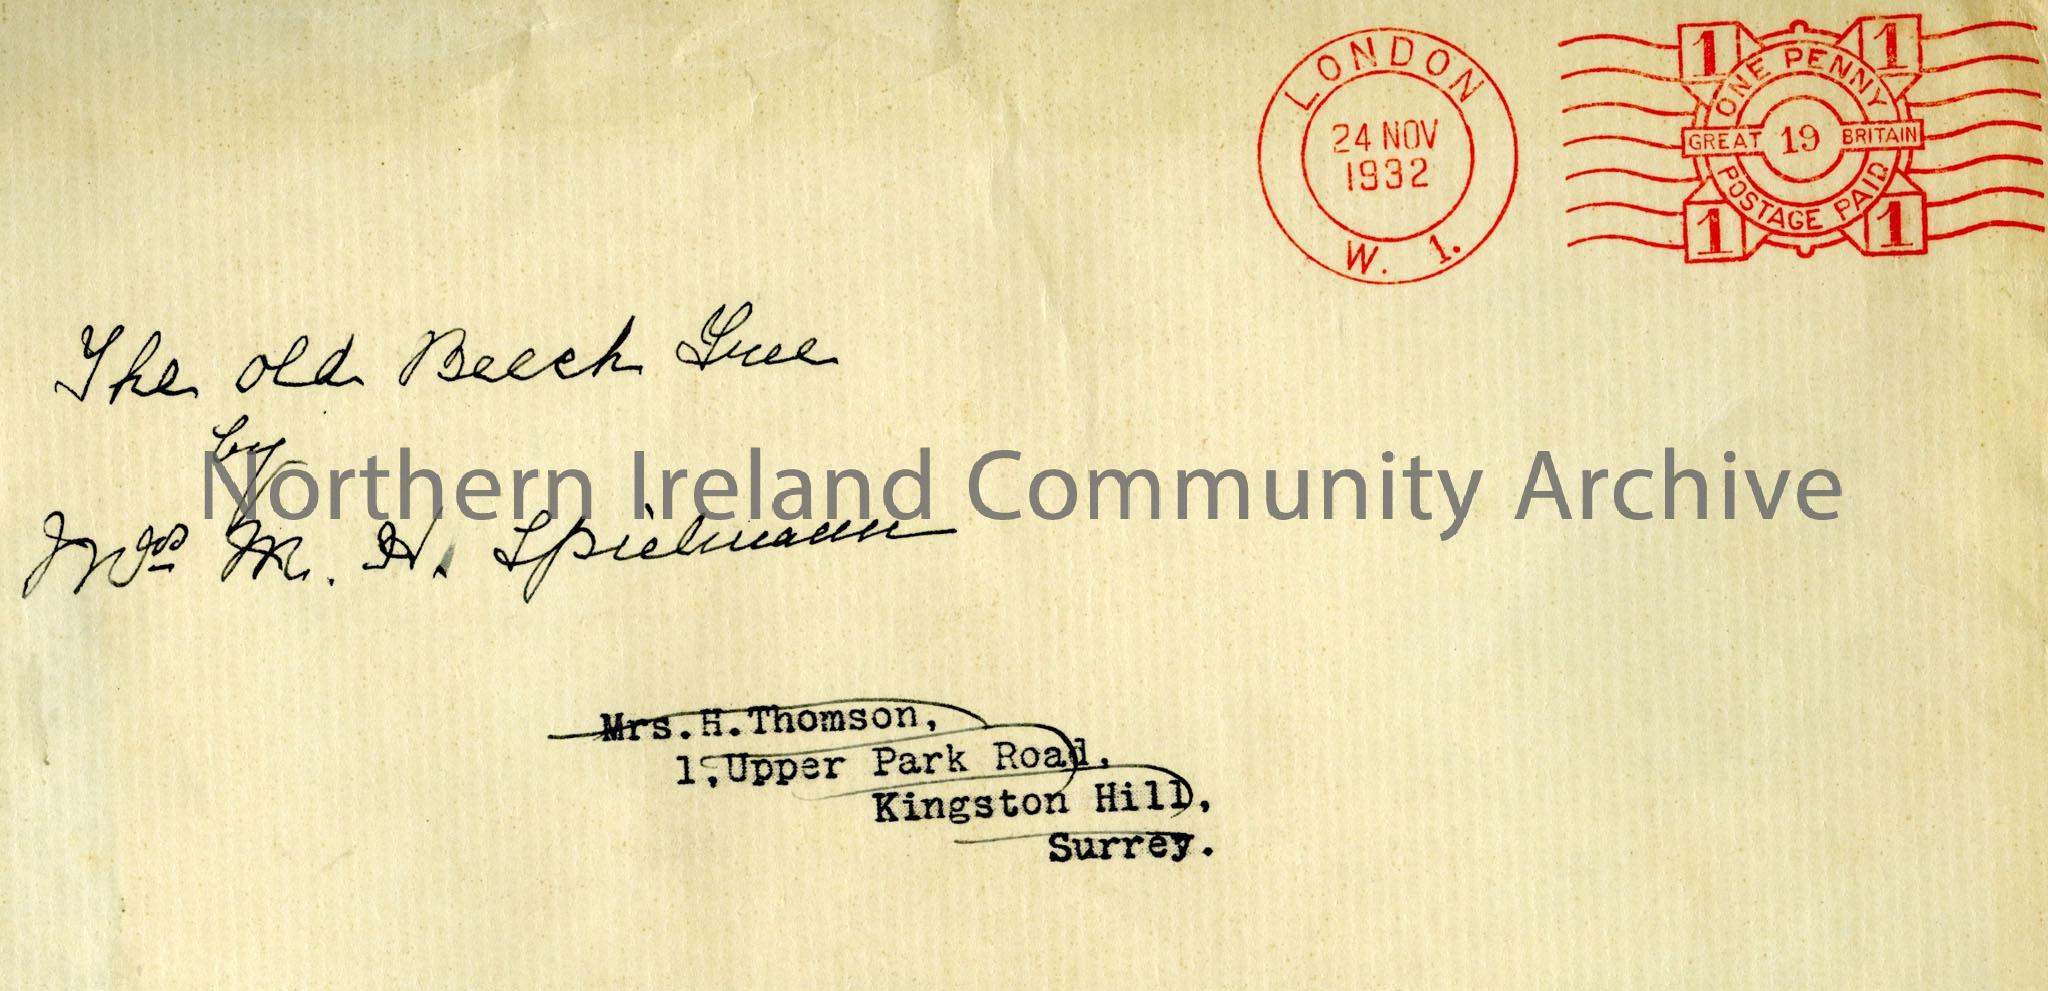 LONDON
24 NOV
1932
W. 1.
1 1
ONE PENNY
GREAT 19 BRITAIN
POSTAGE PAID
1 1
The old Beech Tree
by
Northern Ireland Community Archive
Mrs M. H. Spielmann
Mrs.H.Thomson,
1,Upper Park Road,
Kingston Hill,
Surrey.